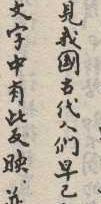 見我国古代人们早已
文字中有此反映